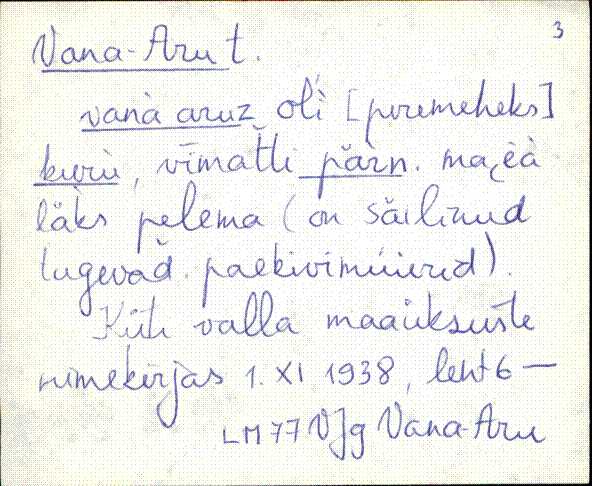 3
Vana-Aru t.
vanà aruz olì [peremeheks]
kurù, vīmat̆t̆i pärn. ma
läks pelema (on säilinud
tugevad. paekivimüürid).
valla maaüksuste
nimekirjas 1. XI 1938, leht 6 —
LM 77 VJg Vana-Aru